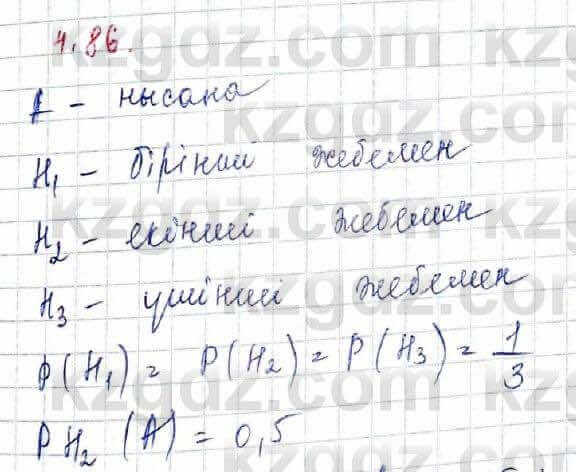 4.86.
A – нысана
H₁ – бірінші жебемен
H₂ – екінші жебемен
H₃ – үшінші жебемен
P(H₁) = P(H₂) = P(H₃) = 1/3
P H₂ (A) = 0,5
kzgdz.com